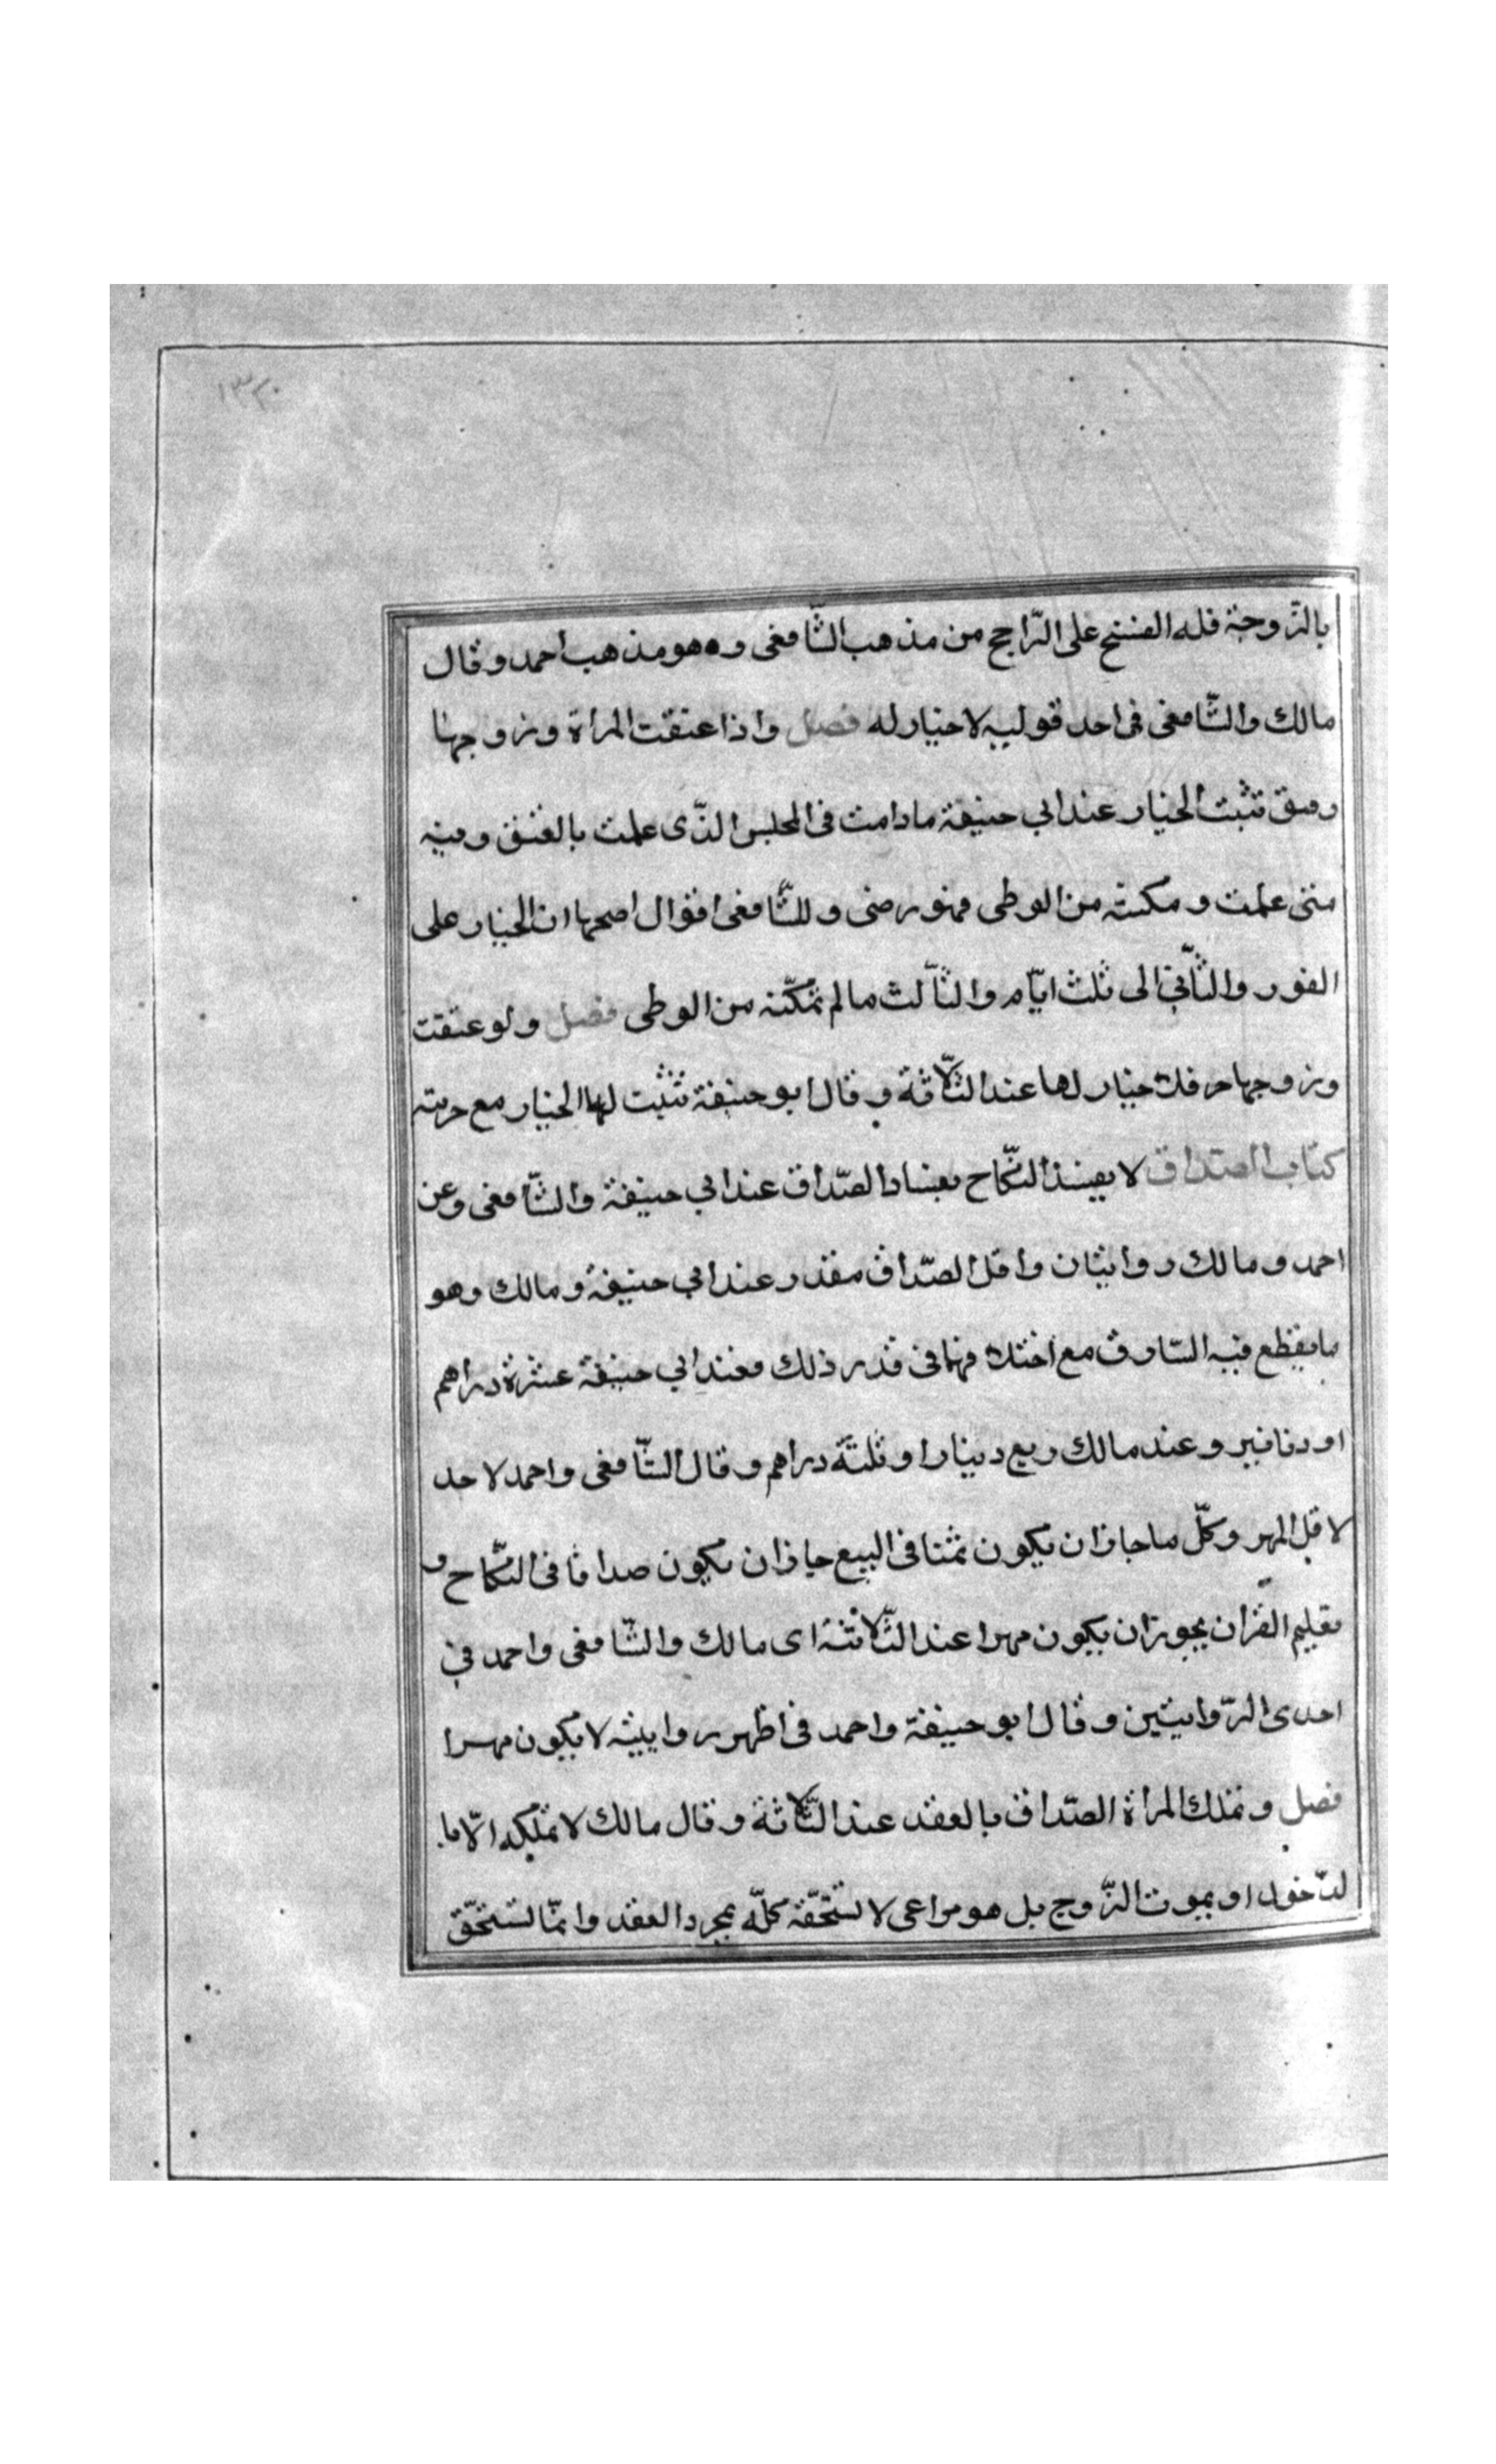 ١٣٢٠
بالزّوجة فله الفسخ على الرّاجح من مذهب الشّافعى وه هو مذهب احمد وقال
مالك والشّافعى فى احد قوليه لا خيار له فصل واذا عتقت المراة وزوجها
رقيق تثبت الخيار عند ابي حنيفة ما دامت فى المجلس الذّى علمت بالعتق وفيه
متى علمت ومكنته من الوطى فهو رضى وللشّافعى اقوال اصحها ان الخيار على
الفور والثّاني الى ثلث ايّام والثّالث مالم تمكّنه من الوطى فصل ولو عتقت
وزوجها حر فلا خيار لها عند الثّلاثة وقال ابو حنيفة تثبت لها الخيار مع حريته
كتاب الصّداق لا يفسد النّكاح بفساد الصّداق عند ابي حنيفة والشّافعى وعن
احمد ومالك روايتان واقل الصّداق مقدر عند ابي حنيفة ومالك وهو
ما يقطع فيه السّارق مع اختلافهما فى قدر ذلك فعند ابي حنيفة عشرة دراهم
او دنانير وعند مالك ربع دينار او ثلثة دراهم وقال الشّافعى واحمد لا حد
لاقل المهر وكلّ ما جاز ان يكون ثمنا فى البيع جاز ان يكون صداقا فى النّكاح و
تعليم القرآن يجوز ان يكون مهرا عند الثّلاثة اى مالك والشّافعى واحمد في
احدى الرّوايتين وقال ابو حنيفة واحمد فى اظهر روايتيه لا يكون مهرا
فصل وتملك المراة الصّداق بالعقد عند الثّلاثة وقال مالك لا تملكه الّا با
لدّخول او بموت الزّوج بل هو مراعى لا تستحقّه كلّه بمجرد العقد وانّما تستحقّ